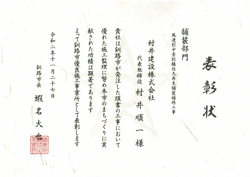 表彰状
舗装部門
村井建設株式会社
代表取締役 村井順一様
貴社は釧路市が発注した頭書の工事において
優れた施工監理に努め本市のまちづくりに貢
献された功績は顕著であります
よって釧路市優良施工事業所として表彰します
令和二年十一月二十七日
釧路市長 蝦名大也